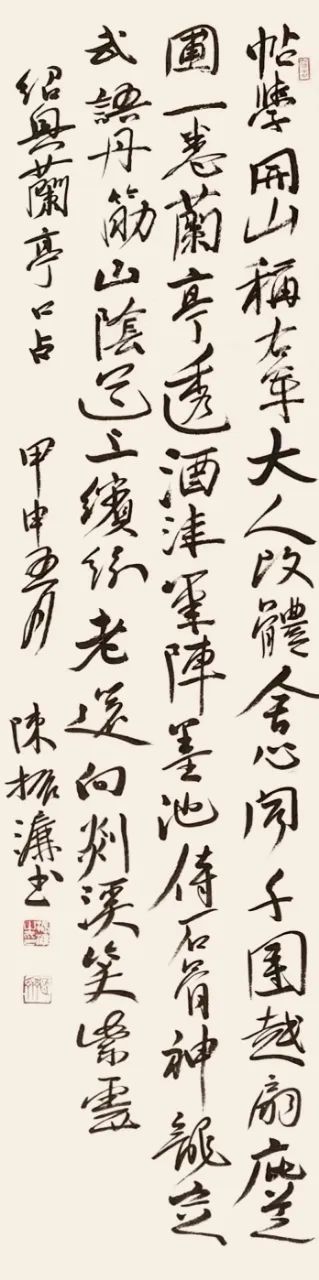 帖學開山稱右軍大人改體會心聞千圍越扇
圃一卷蘭亭透酒筆陣墨池侍石骨神龍立
武語丹筋山陰道上繽紛老還向剡溪笑紫雲
紹興蘭亭口占 甲申五月 陳振濂書